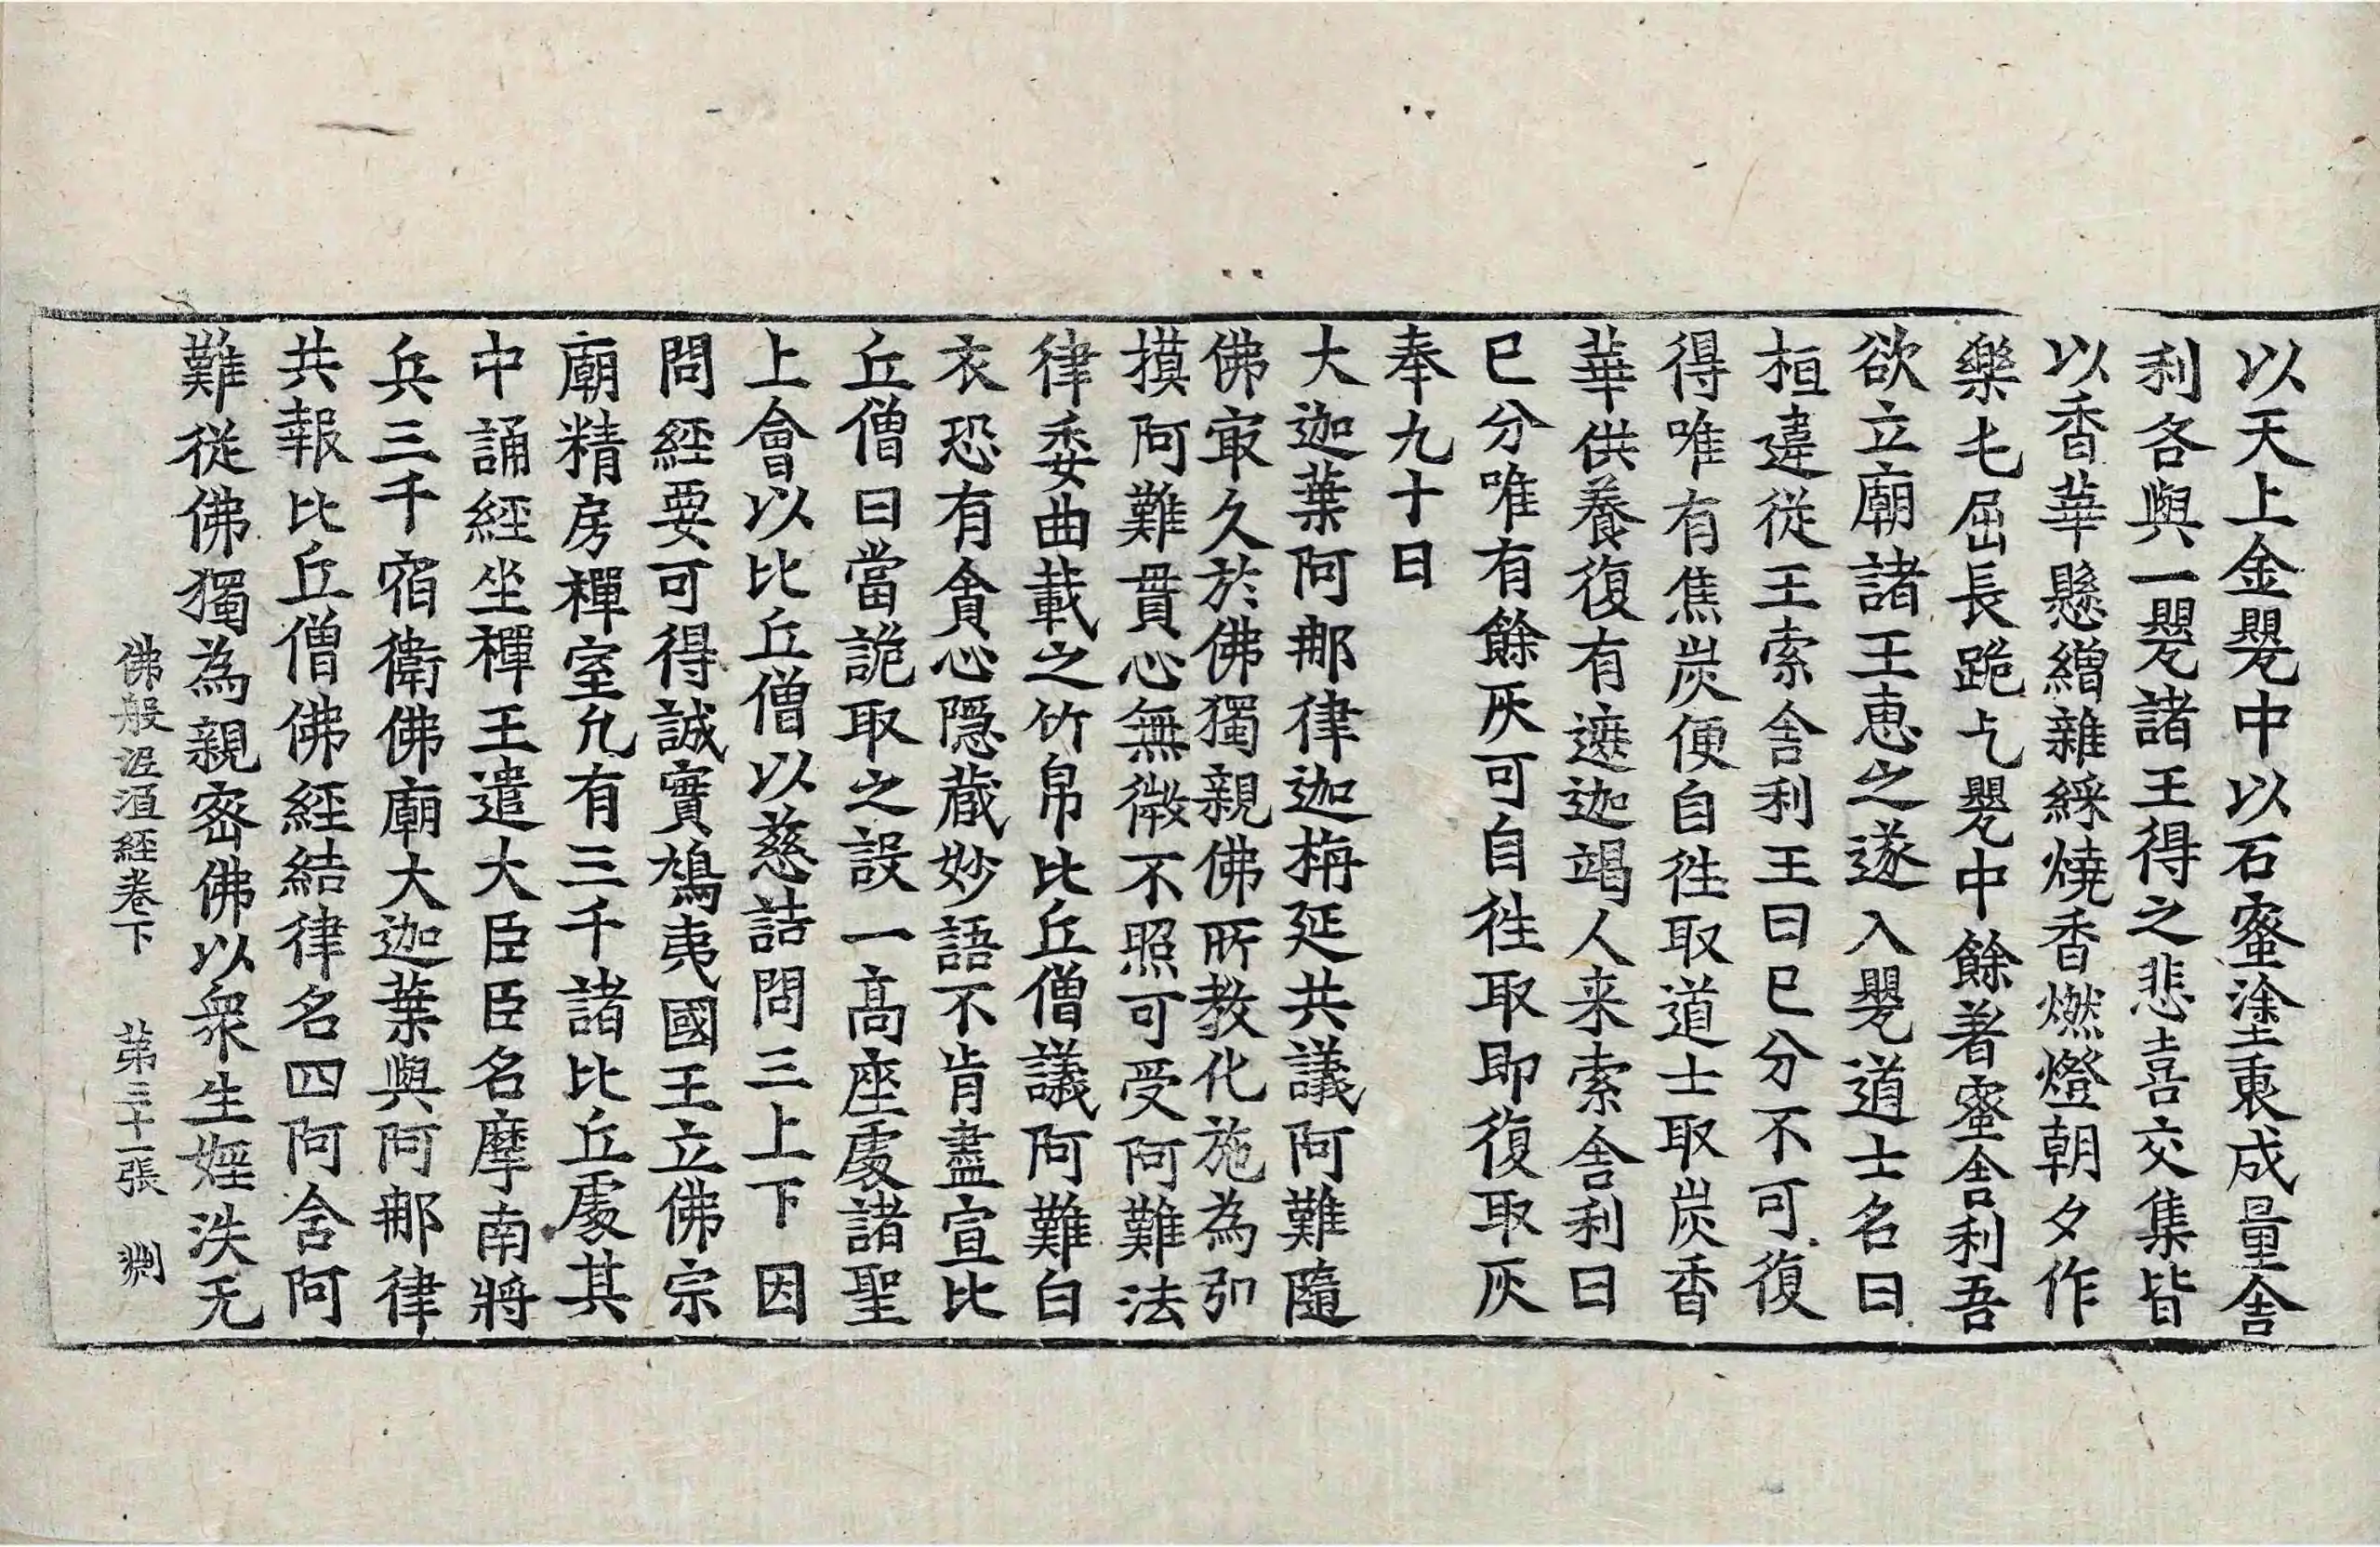 以天上金甖中以石蜜塗裹成量舎
利各與一甖諸王得之悲喜交集皆
以香華懸繒雜綵燒香燃燈朝夕作
樂屯屈長跪乞甖中餘著蜜舎利吾
欲立廟諸王恵之遂入甖道士名曰
桓違從王索舎利王曰已分不可復
得唯有焦炭便自徃取道士取炭香
華供養復有遮迦竭人来索舎利曰
已分唯有餘灰可自徃取即復取灰
奉九十日
大迦葉阿那律迦栴延共議阿難隨
佛㝡久於佛獨親佛所教化施為弘
摸阿難貫心無微不照可受阿難法
律委曲載之竹帛比丘僧議阿難白
衣恐有貪心隱藏妙語不肯盡宣比
丘僧曰當詭取之設一髙座處諸聖
上會以比丘僧以慈詰問三上下因
問經要可得誠實鳩夷國王立佛宗
廟精房禪室允有三千諸比丘處其
中誦經坐禪王遣大臣臣名摩南將
兵三千宿衛佛廟大迦葉與阿那律
共報比丘僧佛經結律名四阿含阿
難從佛獨為親密佛以衆生婬泆无
佛般泥洹經卷下　苐三十一張